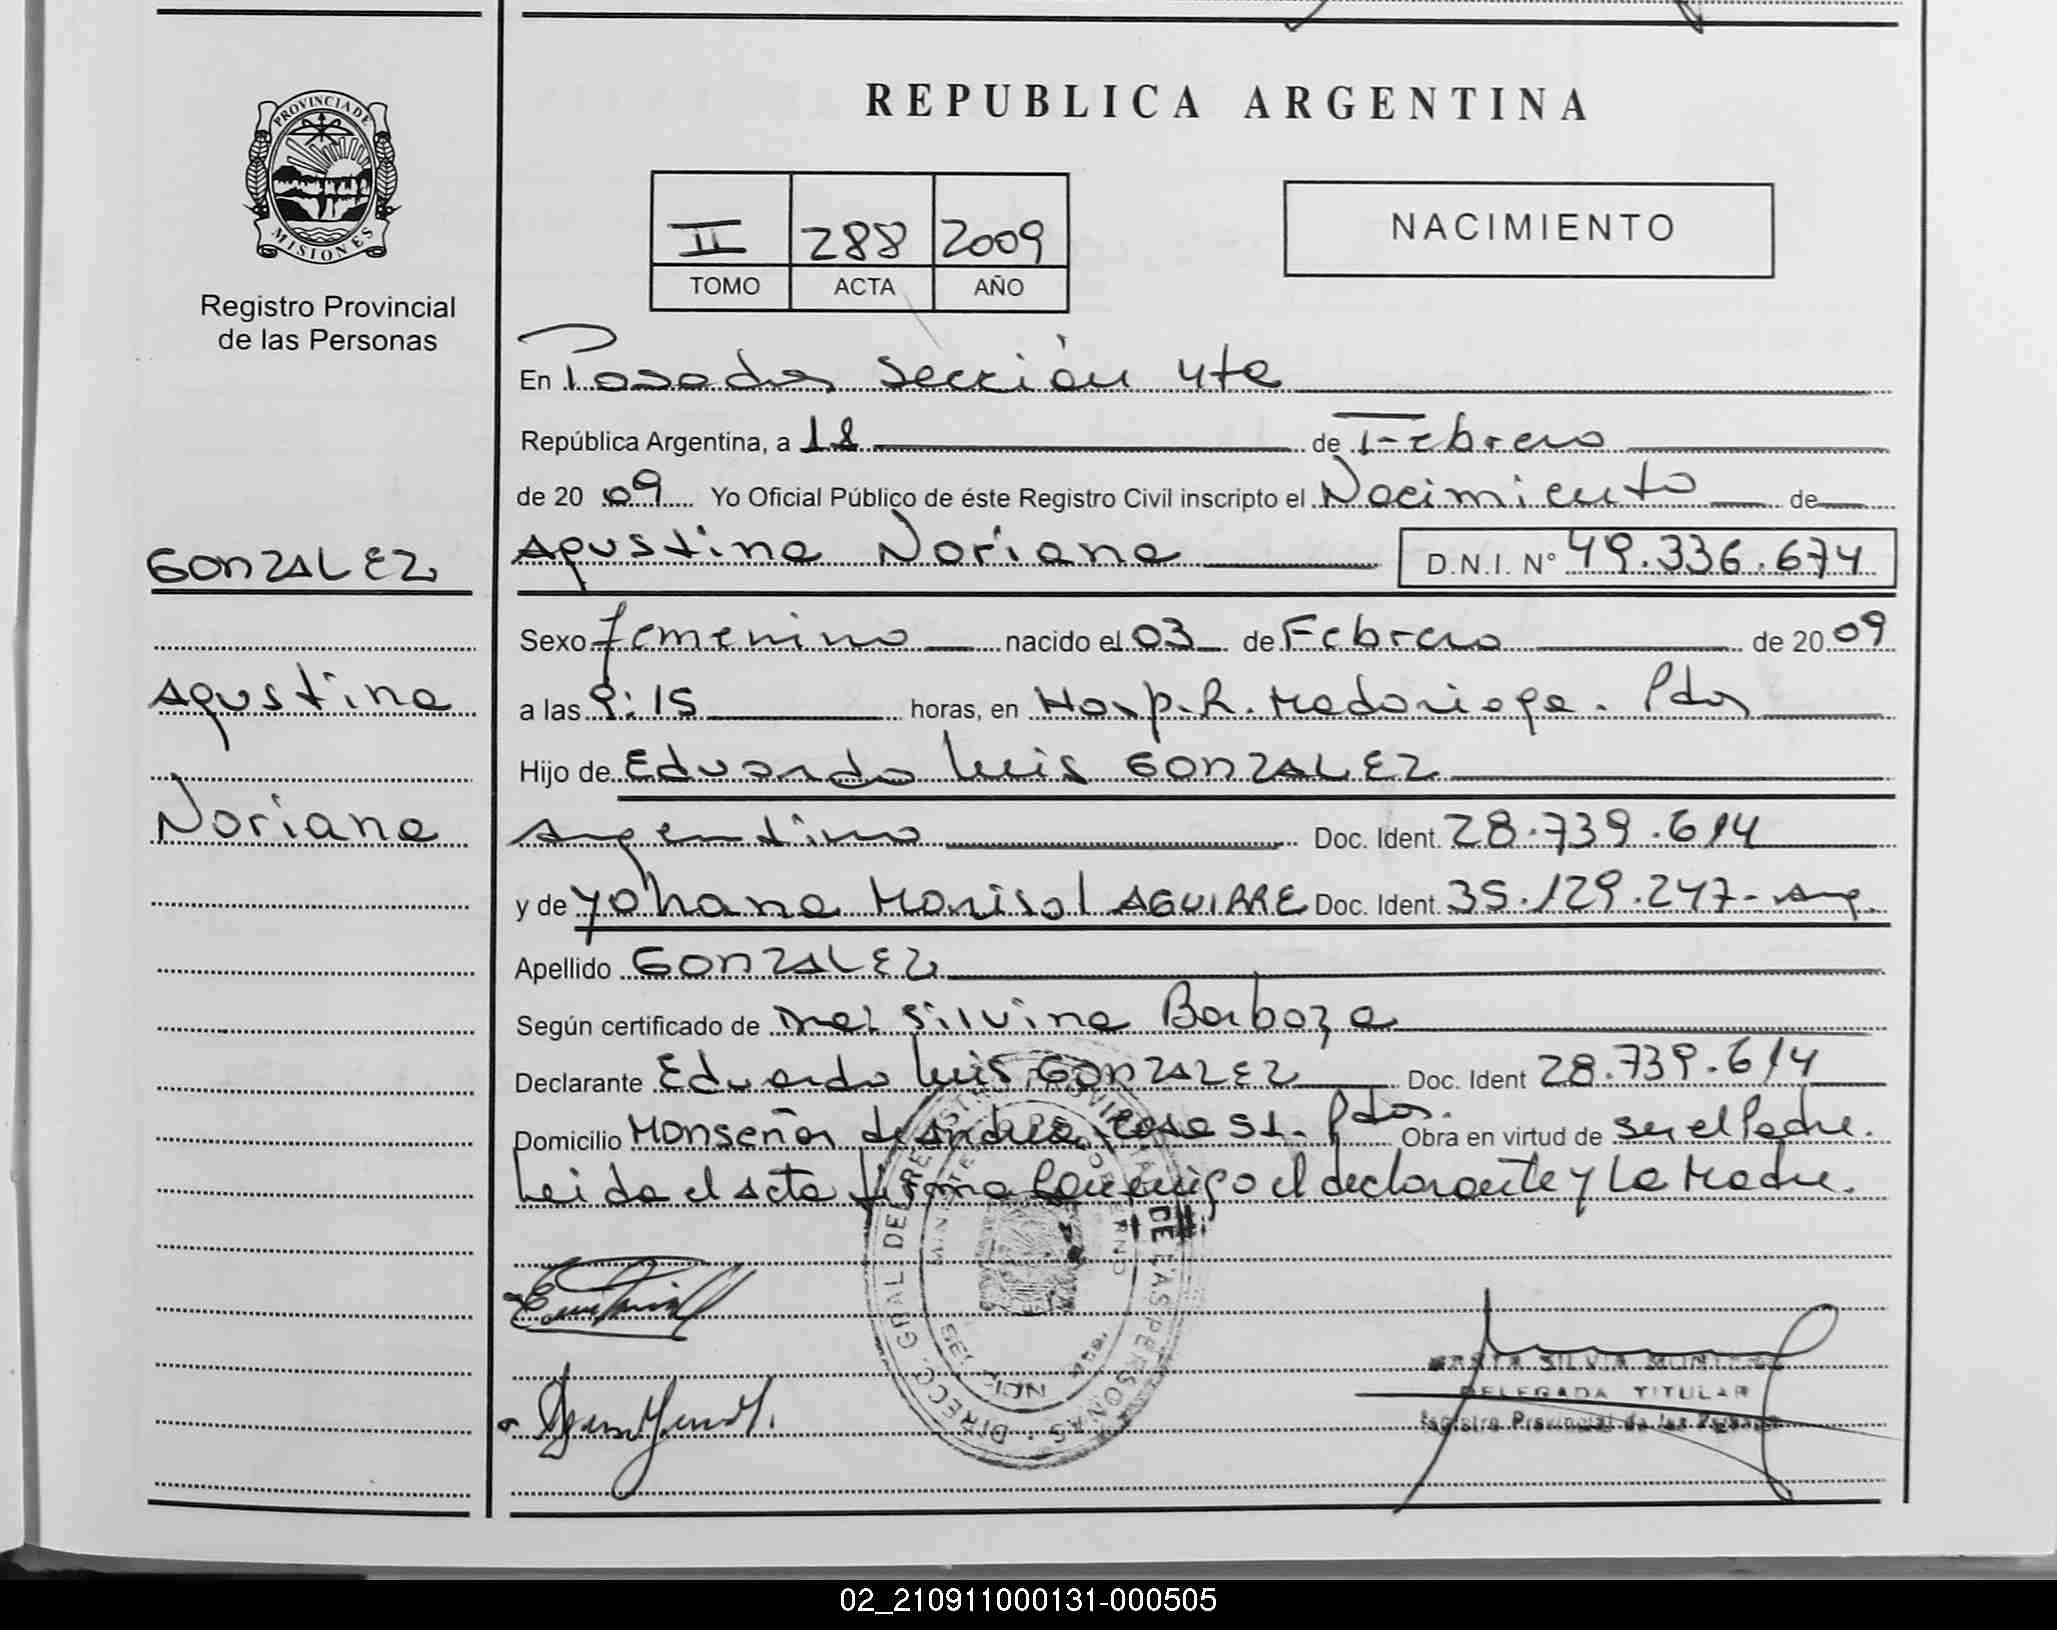 PROVINCIA DE
MISIONES
Registro Provincial
de las Personas
REPUBLICA ARGENTINA
II 288 2009
TOMO ACTA AÑO
NACIMIENTO
En Posadas Sección 4ta
República Argentina, a 18 de Febrero
de 20 09 Yo Oficial Público de éste Registro Civil inscripto el Nacimiento de
GONZALEZ
Agustina Noriana D.N.I. N° 49.336.674
Sexo femenino nacido el 03 de Febrero de 20 09
Agustina
a las 9:15 horas, en Hosp. R. Madariaga. Pdas
Hijo de Eduardo Luis GONZALEZ
Noriana
Argentino Doc. Ident. 28.739.614
y de Yohana Marisol AGUIRRE Doc. Ident. 35.129.247- Arg.
Apellido GONZALEZ
Según certificado de Silvina Barboza
Declarante Eduardo Luis GONZALEZ Doc. Ident 28.739.614
Domicilio Monseñor de Andrea, Casa 51- Pdas. Obra en virtud de ser el Padre.
Leida el acta firma conmigo el declarante y La Madre.
DIRECC. GRAL DEL REGISTRO PROVINCIAL DE LAS PERSONAS
SILVIA
DELEGADA TITULAR
Registro Provincial de las Personas
02_210911000131-000505